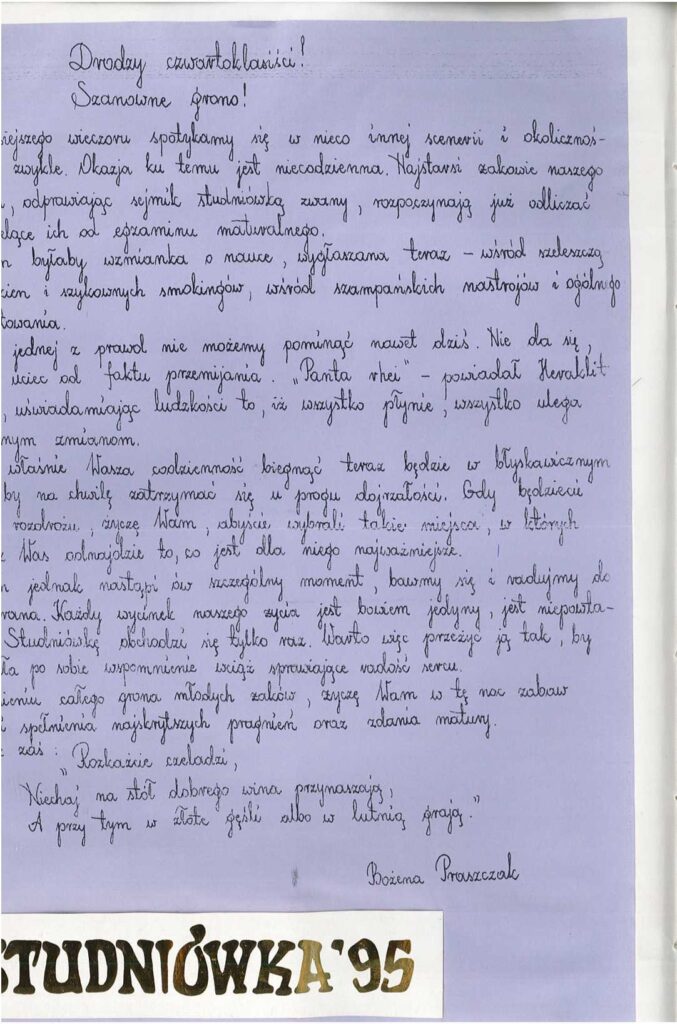 Drodzy czwartoklasiści!
Szanowne grono!
siejszego wieczoru spotykamy się w nieco innej scenerii i okolicznoś-
zwykle. Okazja ku temu jest niecodzienna. Najstarsi żakowie naszego
, odprawiając sejmik studniówką zwany, rozpoczynają już odliczać
elące ich od egzaminu maturalnego.
n byłaby wzmianka o nauce, wygłaszana teraz - wśród szeleszczą
kien i szykownych smokingów, wśród szampańskich nastrojów i ogólnego
towania.
jednej z prawd nie możemy pominąć nawet dziś. Nie da się,
uciec od faktu przemijania. "Panta rhei" - powiadał Heraklit
, uświadamiając ludzkości to, iż wszystko płynie, wszystko ulega
nym zmianom.
właśnie Wasza codzienność biegnąć teraz będzie w błyskawicznym
by na chwilę zatrzymać się u progu dojrzałości. Gdy będziecie
rozdrożu, życzę Wam, abyście wybrali takie miejsca, w których
z Was odnajdzie to, co jest dla niego najważniejsze.
m jednak nastąpi ów szczególny moment, bawmy się i radujmy do
rana. Każdy wycinek naszego życia jest bowiem jedyny, jest niepowta-
Studniówkę obchodzi się tylko raz. Warto więc przeżyć ją tak, by
ła po sobie wspomnienie wciąż sprawiające radość sercu.
ieniu całego grona młodych żaków, życzę Wam w tę noc zabaw
i spełnienia najskrytszych pragnień oraz zdania matury.
z zaś:
"Rozkażcie czeladzi,
Niechaj na stół dobrego wina przynaszają,
A przy tym w złote gęśli albo w lutnią grają."
Bożena Praszczak
STUDNIÓWKA '95